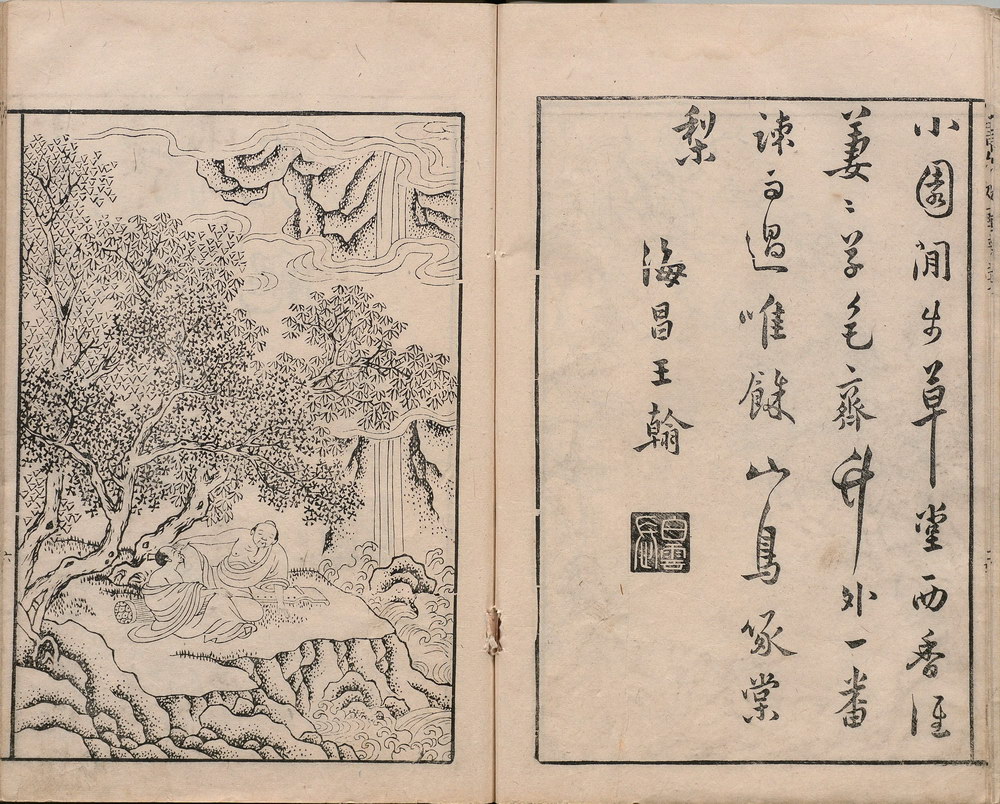 小園閒步草堂西香徑
萋〻草色齊竹外一番
疎雨過唯餘山鳥啄棠
梨
海昌王翰
白雲